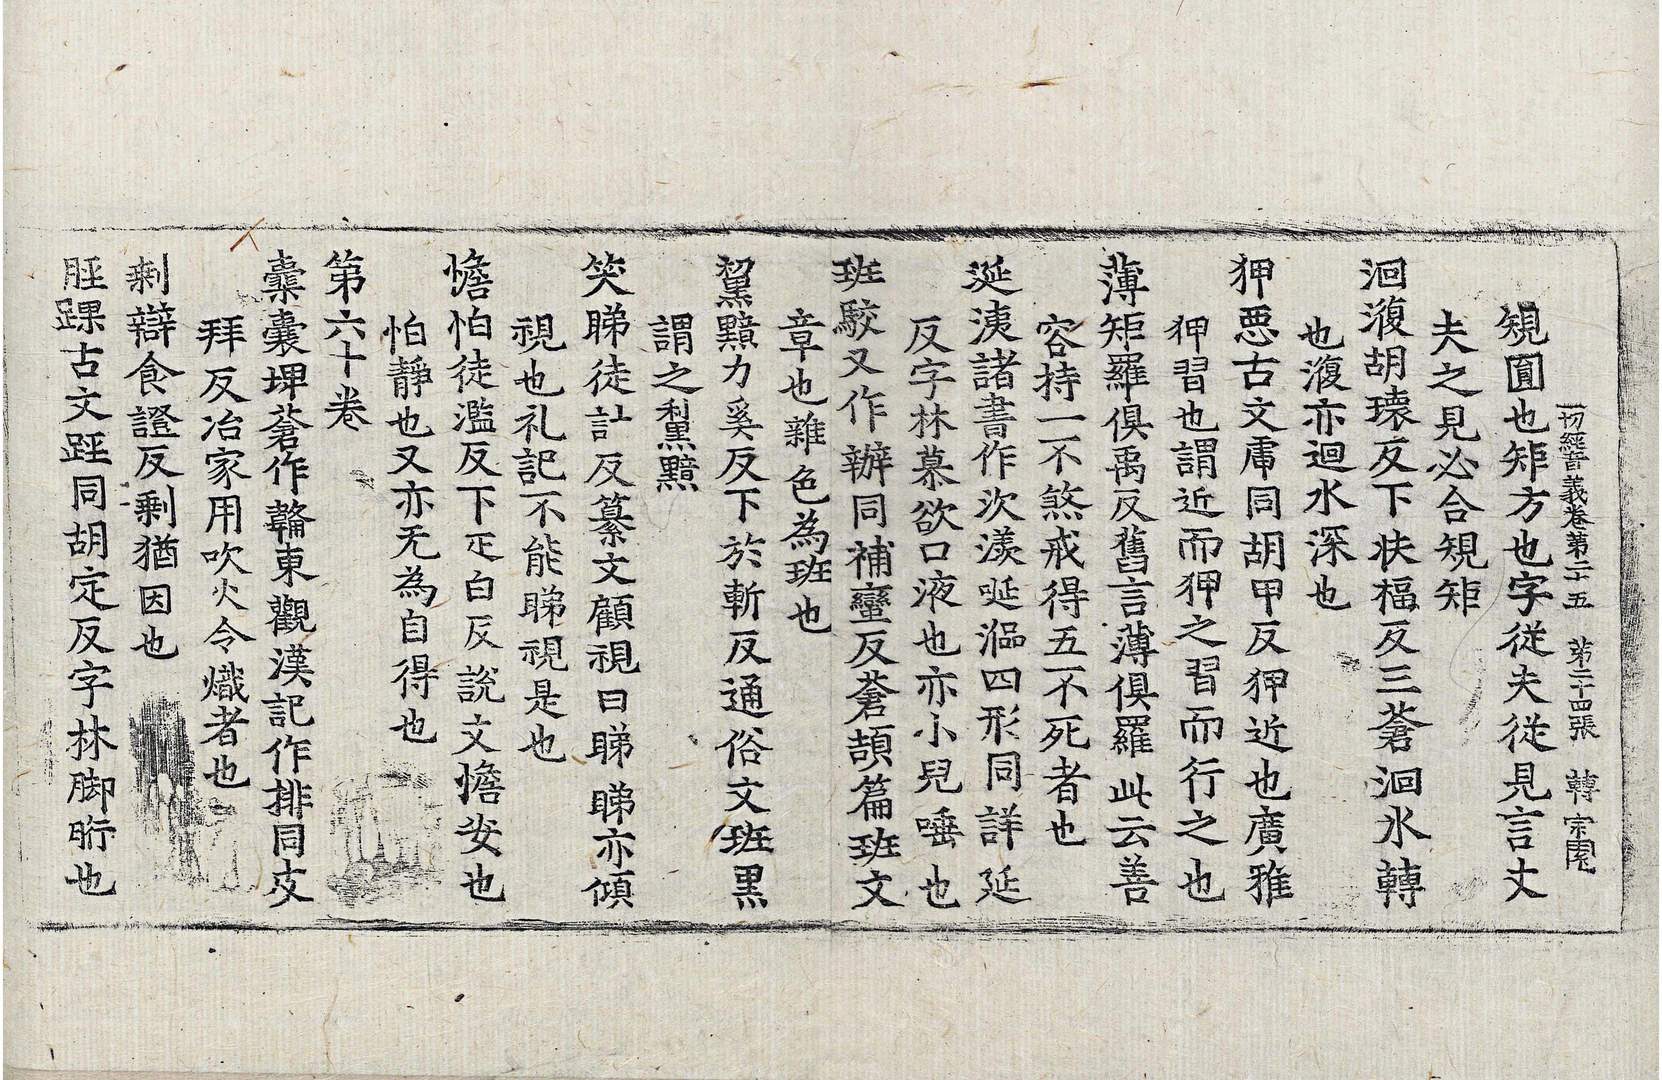 一切經音義卷第二十五 第二十四張 轉 宗園
䂓圓也矩方也字從夫從見言丈
夫之見必合䂓矩
洄澓胡瓌反下扶福反三蒼洄水轉
也澓亦迴水深也
狎惡古文庘同胡甲反狎近也廣雅
狎習也謂近而狎之習而行之也
薄矩羅俱禹反舊言薄俱羅此云善
容持一不煞戒得五不死者也
涎洟諸書作次㳄涎漚四形同詳延
反字林慕欲口液也亦小兒唾也
班駮又作辦同補蠻反蒼頡篇班文
章也雜色為班也
黧黯力奚反下於斬反通俗文班黑
謂之黧黯
笑睇徒計反纂文顧視曰睇睇亦傾
視也礼記不能睇視是也
憺怕徒濫反下疋白反說文憺安也
怕靜也又亦无為自得也
第六十卷
橐囊埤蒼作韛東觀漢記作排同皮
拜反冶家用吹火令熾者也
剩辯食證反剩猶因也
脛踝古文踁同胡定反字林脚䯒也